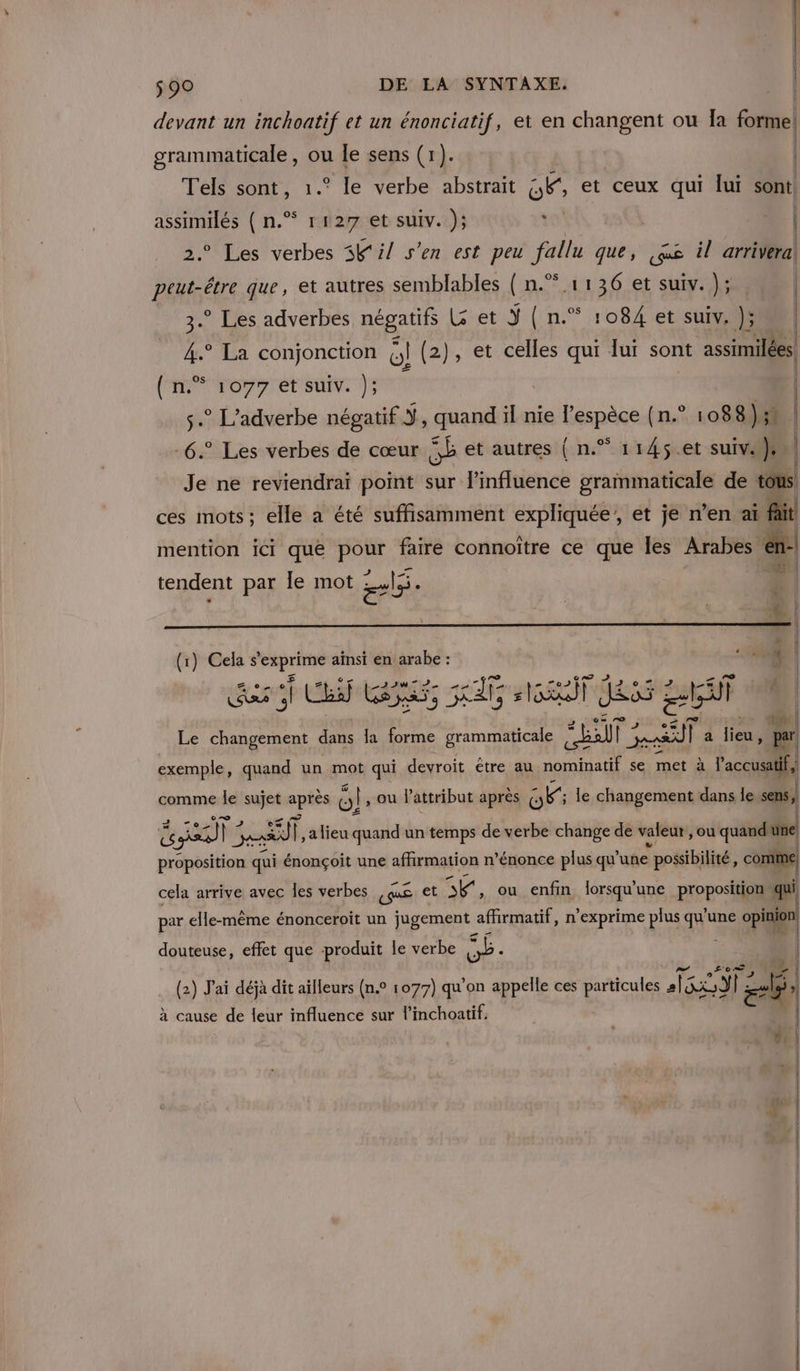 590 DE LA SYNTAXE.
devant un inchoatif et un énonciatif, et en changent ou la forme
grammaticale, ou le sens (1).
Tels sont, 1.° le verbe abstrait كَانَ, et ceux qui lui sont
assimilés (n.os 1127 et suiv.);
2.° Les verbes كَادَ il s'en est peu fallu que, عَسَى il arrivera
peut-être que, et autres semblables (n.os 1136 et suiv.);
3.° Les adverbes négatifs مَا et لَا (n.os 1084 et suiv.);
4.° La conjonction إِنَّ (2), et celles qui lui sont assimilées
(n.os 1077 et suiv.);
5.° L'adverbe négatif لَا, quand il nie l'espèce (n.° 1088);
6.° Les verbes de cœur ظَنَّ et autres (n.os 1145 et suiv.).
Je ne reviendrai point sur l'influence grammaticale de tous
ces mots; elle a été suffisamment expliquée, et je n'en ai fait
mention ici que pour faire connoître ce que les Arabes en-
tendent par le mot نَاسِخ.
(1) Cela s'exprime ainsi en arabe:
النَّاسِخُ يَدْخُلُ الْمُبْتَدَاءَ وَالْخَبَرَ وَيُغَيِّرُهُمَا لَفْظًا أَوْ مَعْنًى
Le changement dans la forme grammaticale التَّغْيِيرُ اللَّفْظِىُّ a lieu, par
exemple, quand un mot qui devroit être au nominatif se met à l'accusatif,
comme le sujet après إِنَّ, ou l'attribut après كَانَ; le changement dans le sens,
التَّغْيِيرُ الْمَعْنَوِىُّ, a lieu quand un temps de verbe change de valeur, ou quand une
proposition qui énonçoit une affirmation n'énonce plus qu'une possibilité, comme
cela arrive avec les verbes عَسَى et كَادَ, ou enfin lorsqu'une proposition qui
par elle-même énonceroit un jugement affirmatif, n'exprime plus qu'une opinion
douteuse, effet que produit le verbe ظَنَّ.
(2) J'ai déjà dit ailleurs (n.° 1077) qu'on appelle ces particules نَوَاسِخُ الْاِبْتِدَاءِ,
à cause de leur influence sur l'inchoatif.